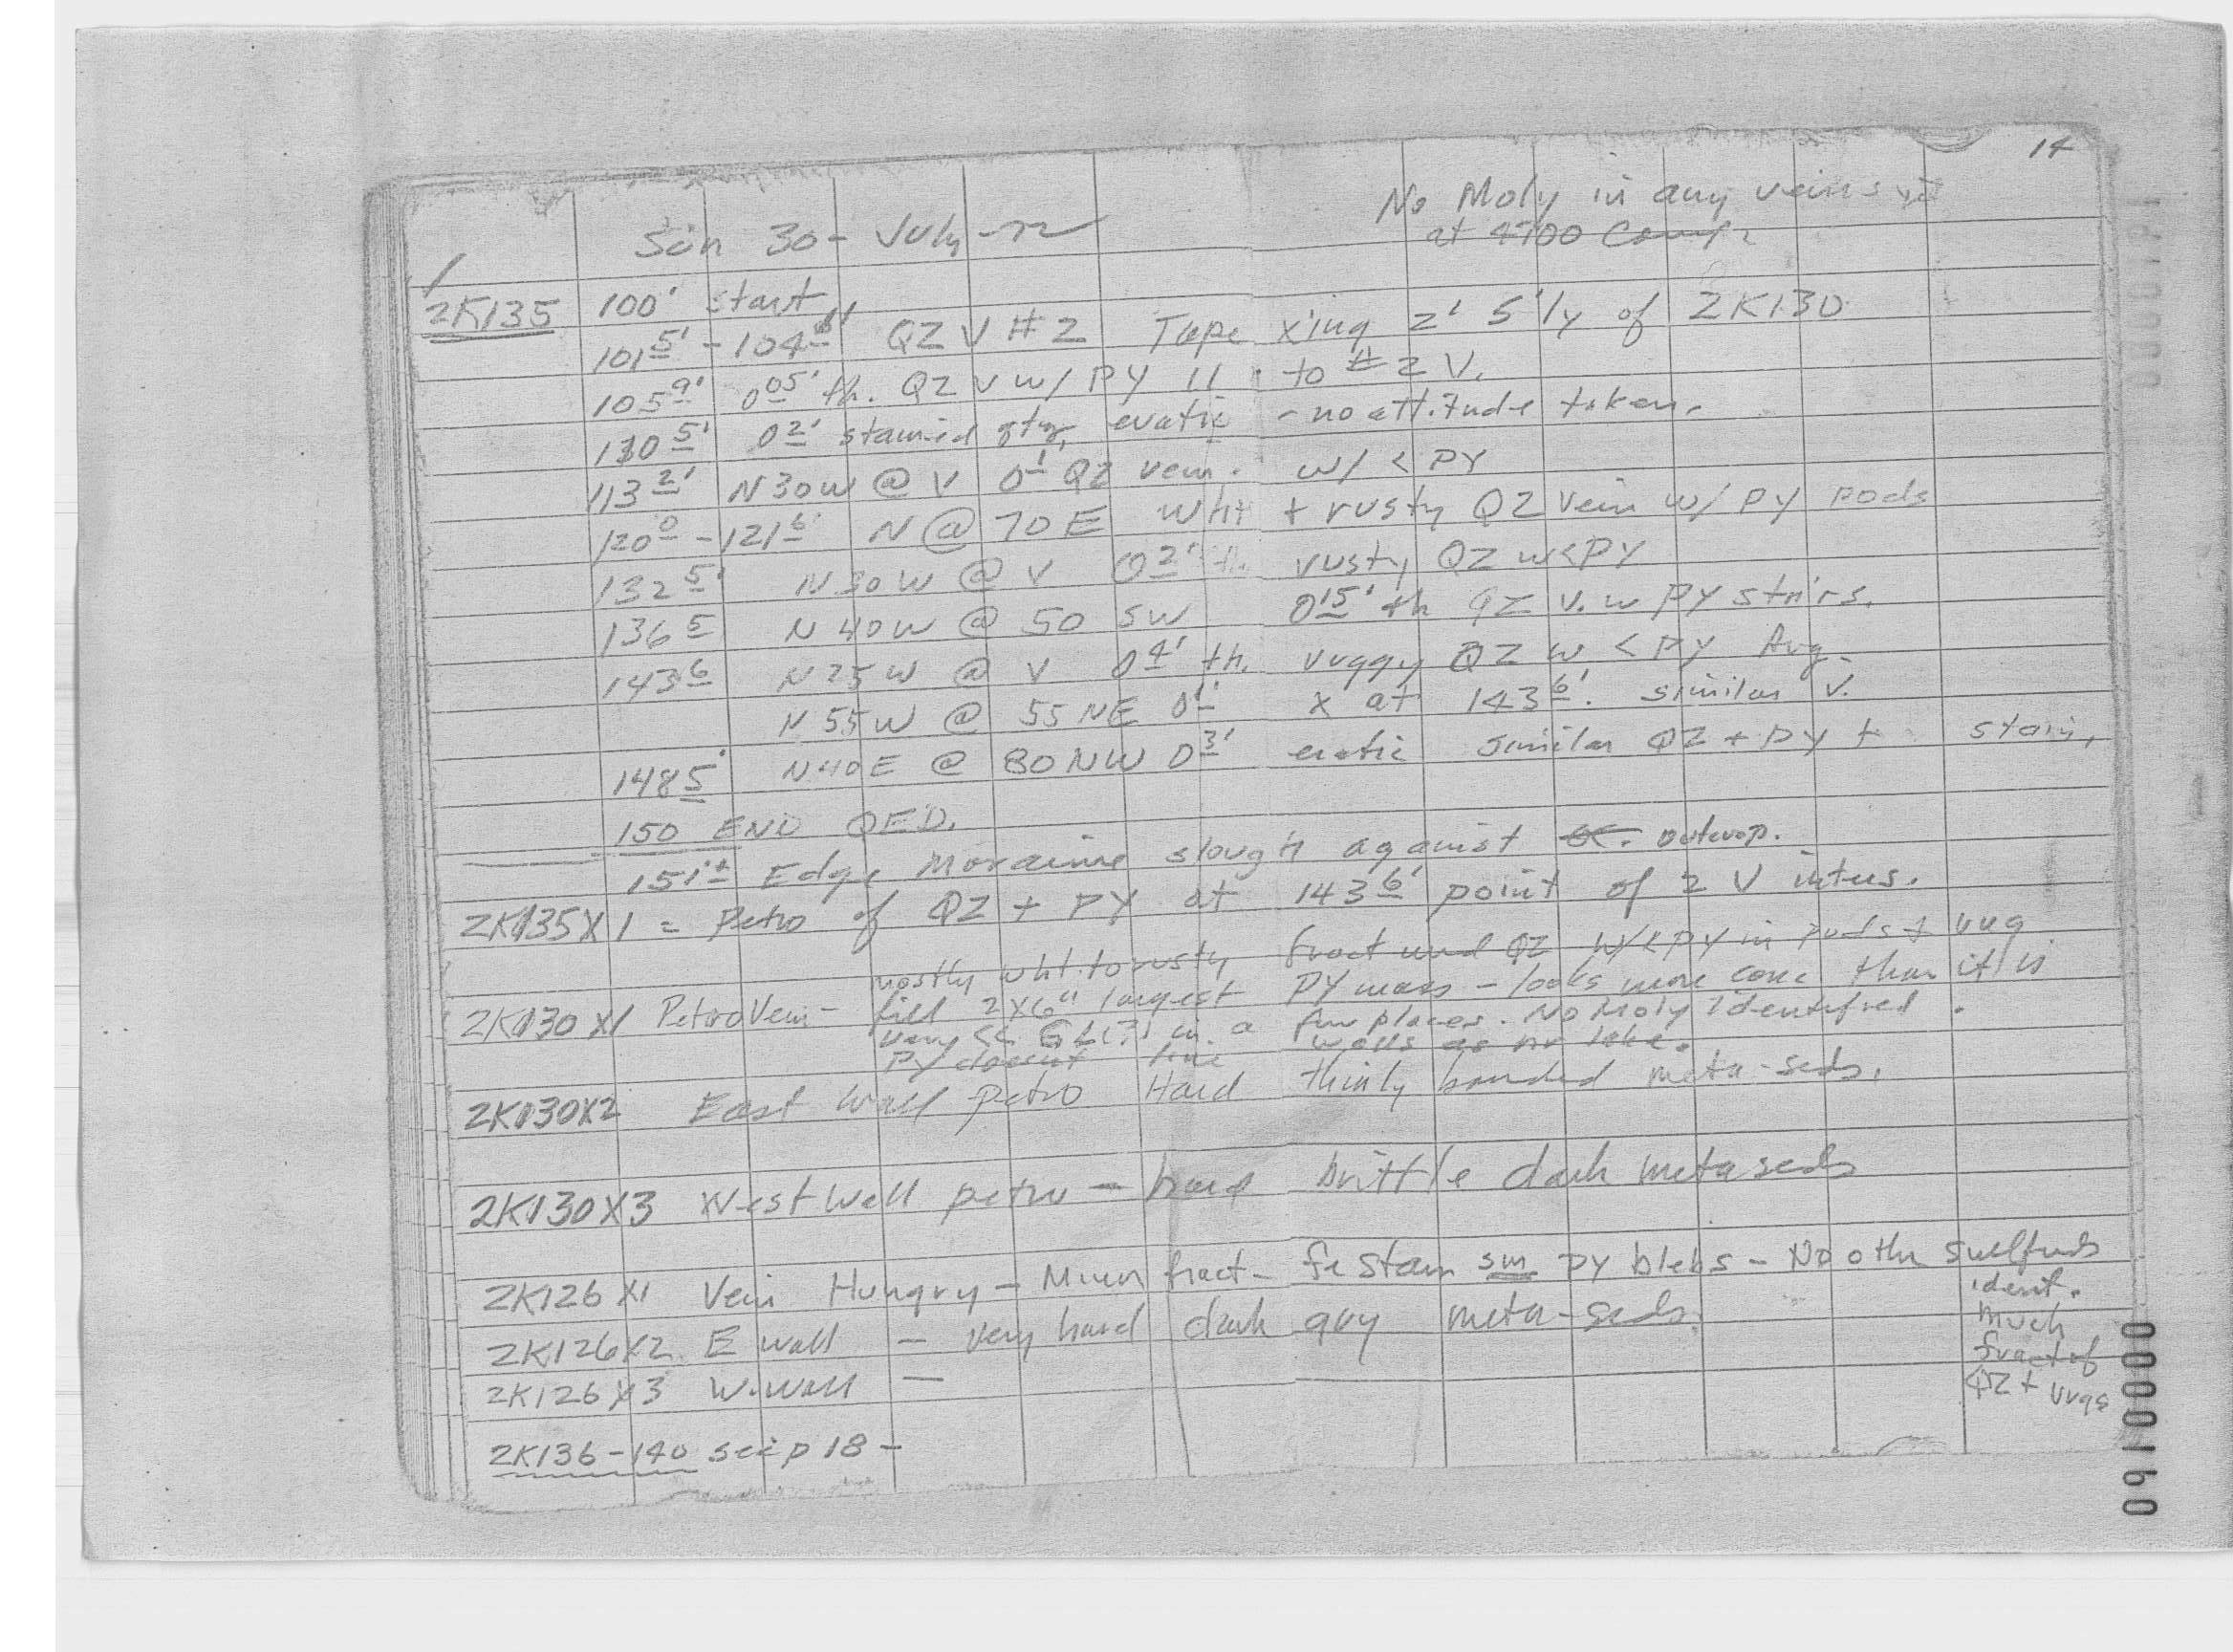 14
Sun 30 - July - 72
No Moly in any veins yet
at 4700 Camp.
2K135 100' start
101 5' - 104 QZ V # 2 Tape x'ing 2' S'ly of 2K130
105 9' 0 05' th. QZ V w/ PY 11 to # 2 V.
130 5' 0 2' stained qtz, eratic - no attitude taken.
113 2' N30W @ V 0 1 QZ vein. w/ < PY
120 0 - 121 6' N @ 70 E wht + rusty QZ vein w/ PY pods
132 5' N30W @ V 0 2' th rusty QZ w < PY
136 5 N 40 W @ 50 SW 0 15' th QZ V. w PY stn'rs.
143 6 N 25 W @ V 0 4' th. vuggy QZ w < PY Avg.
N 55 W @ 55 NE 0 1' x at 143 6'. similar V.
148 5' N40E @ 80 NW 0 3' eratic similar QZ + PY + stain.
150 END QED.
151 ± Edge Moraine slough against outcrop.
2K135X1 = Petro of QZ + PY at 143 6' point of 2 V inters.
2K130X1 Petro Vein - mostly wht. to rusty fractured QZ w/ < PY in pods + vug
fill 2x6" largest PY mass - looks more conc than it is
very << GL(?) in a few places. No Moly identified.
PY doesnt line walls as
2K130X2 East Wall petro Hard thinly banded meta-seds.
2K130X3 West Wall petro - hard brittle dark metaseds
2K126X1 Vein Hungry - Minor fract - fe stain sm PY blebs - No other sulfides
ident.
much
fract of
QZ + vugs
2K126X2 E wall - very hard dark gry meta-seds.
2K126X3 W. wall -
2K136-140 see p 18 -
0000160